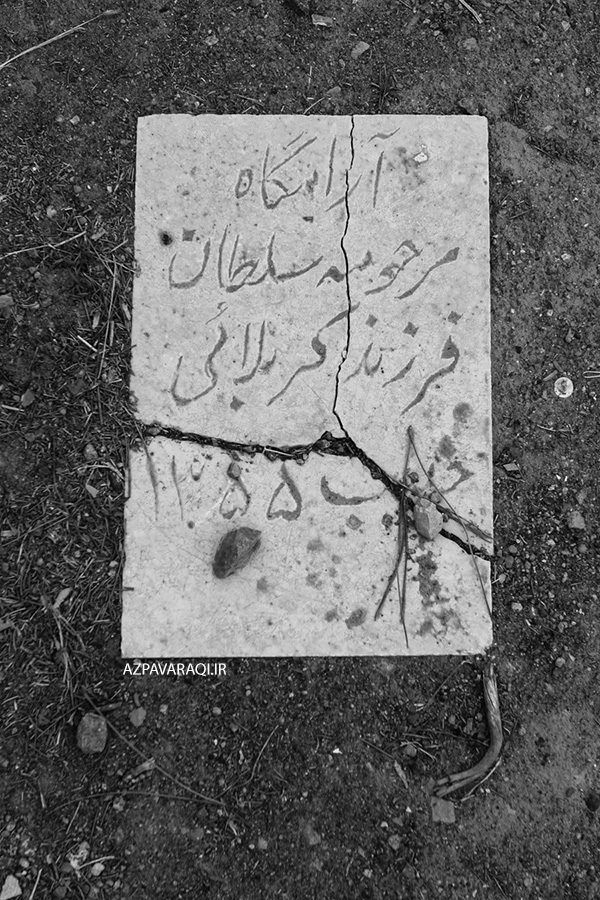 آرامگاه
مرحومه سلطان
فرزند کربلائی
۱۳۵۵
AZPAVARAQI.IR